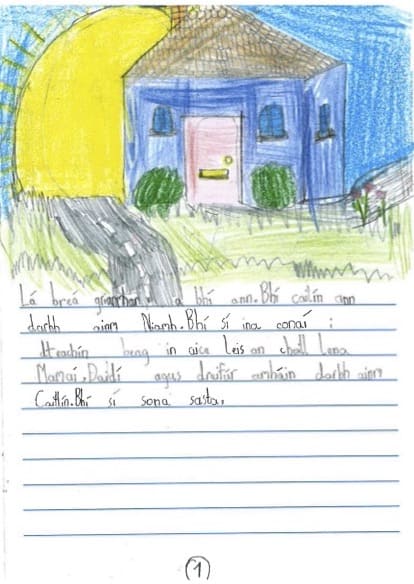 Lá breá grianmhar, a bhí ann. Bhí cailín ann
darbh ainm Niamh. Bhí sí ina conaí i
dteachín beag in aice leis an choill lena
Mamaí, Daidí agus driufúr amháin darbh ainm
Caitlín. Bhí sí sona sasta.
1